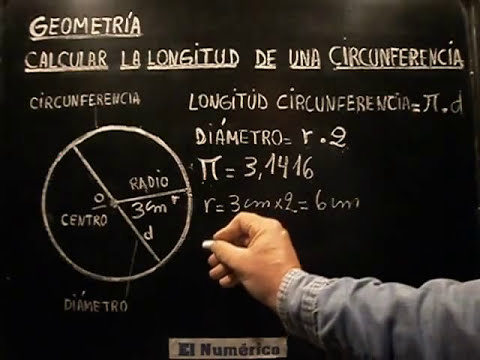 GEOMETRÍA
CALCULAR LA LONGITUD DE UNA CIRCUNFERENCÍA
CIRCUNFERENCIA
LONGITUD CIRCUNFERENCIA = π . d
DIÁMETRO = r . 2
π = 3,1416
r = 3 cm x 2 = 6 cm
RADIO
O
3 cm r
CENTRO
d
DIÁMETRO
El Numérico